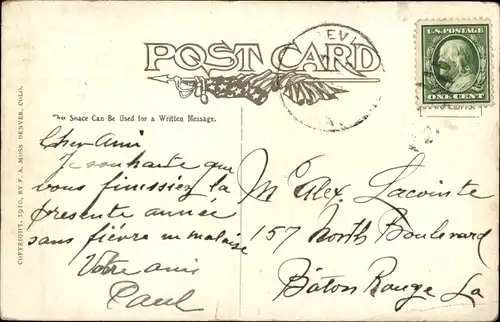 POST CARD
U.S. POSTAGE
ONE CENT
This Space Can Be Used for a Written Message.
COPYRIGHT, 1910, BY F. A. MOSS DENVER, COLO.
Cher Ami
Je souhaite que
vous finissiez la
présente année
sans fièvre ni malaise
Votre ami
Paul
M Alex. Lacointe
157 North Boulevard
Bâton Rouge La